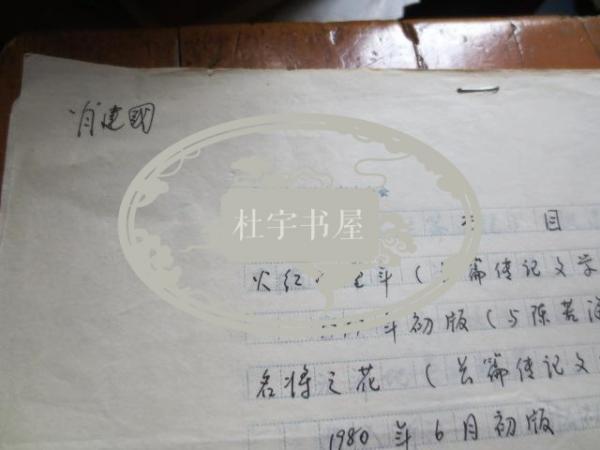 肖建國
杜宇书屋
目
火红 斗（长篇传记文学
年初版（与陈
名将之花（长篇传记文
1980年6月初版